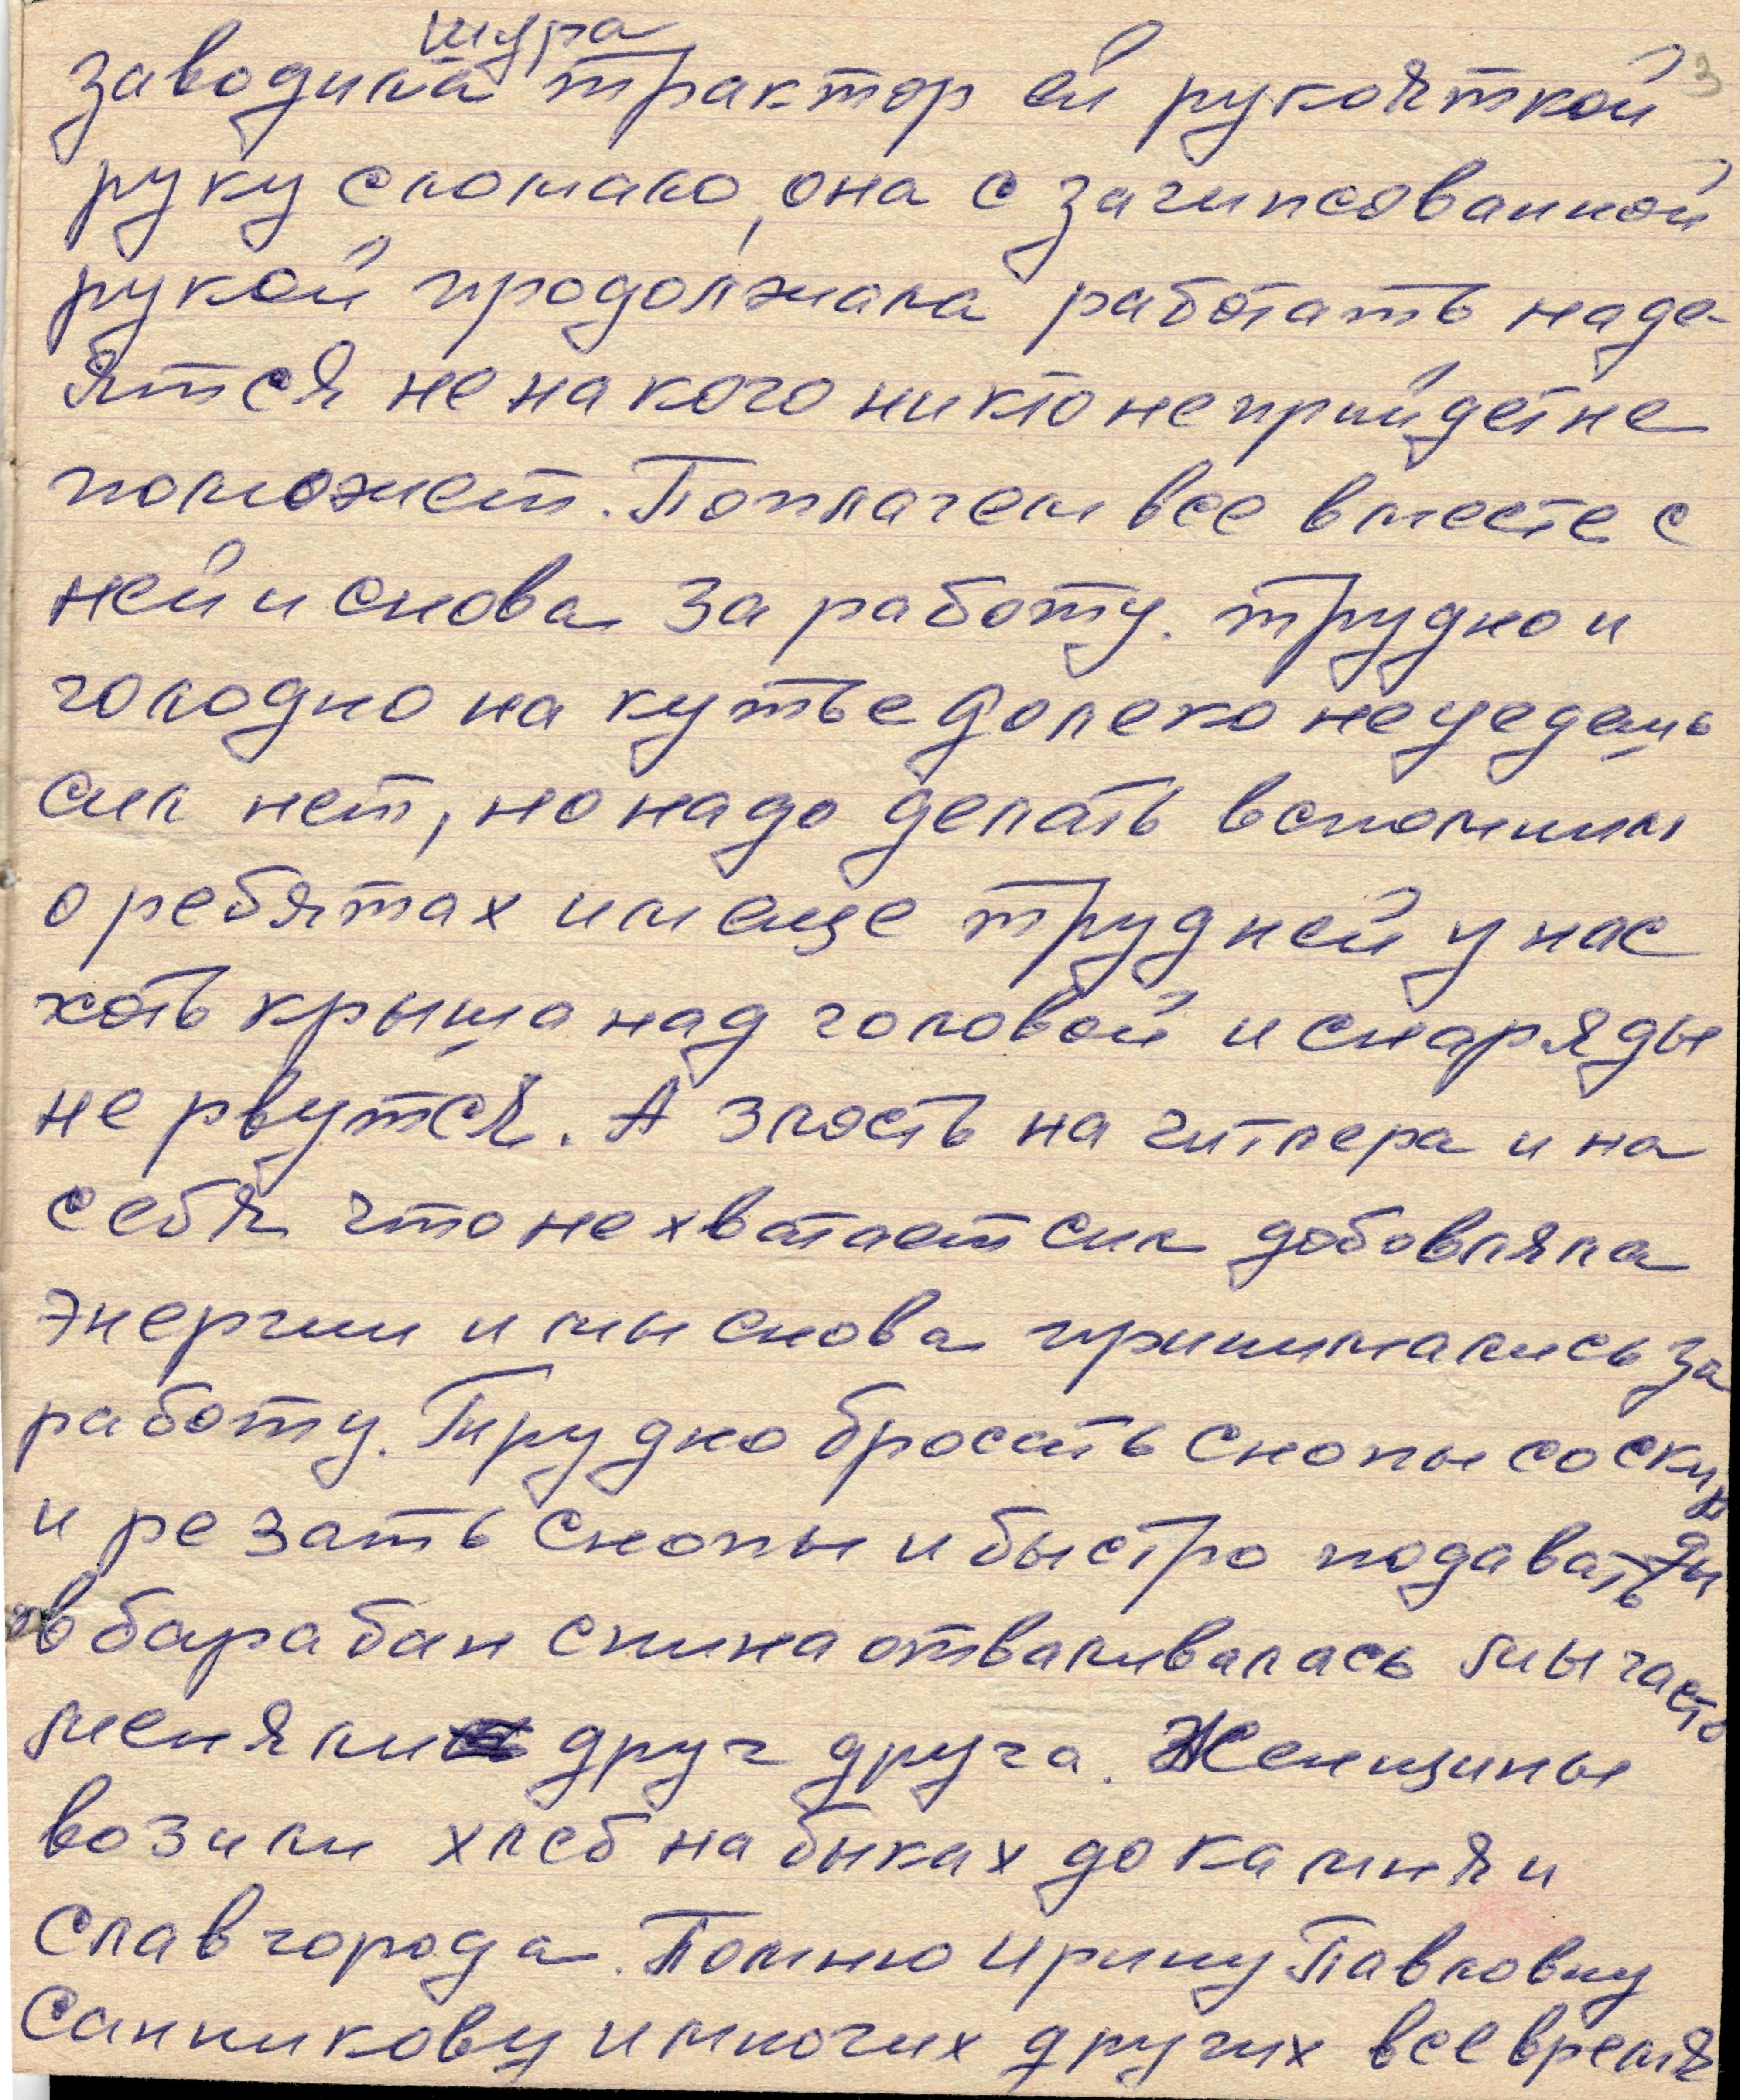 шура
3
заводила трактор ей рукояткой
руку сломало, она с загипсованной
рукой продолжала работать наде-
ятся не на кого никто не прийдет не
поможет. Поплачем все вместе с
ней и снова за работу. трудно и
голодно на кутье долеко не уедешь
сил нет, но надо делать вспомним
о ребятах им еще трудней у нас
хоть крыша над головой и снаряды
не рвутся. А злость на гитлера и на
себя что не хватает сил добовляла
энергии и мы снова принимались за
работу. Трудно бросать снопы со скир
ды
и резать снопы и быстро подавать
в барабан спина отваливалась мы часто
меняли друг друга. Женщины
возили хлеб на быках до камня и
Славгорода. Помню Ирину Павловну
Санникову и многих других все время